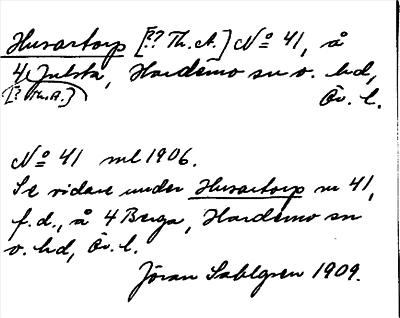 Husartorp [?? Th. A.] No 41, å
4 Julsta, Hardemo sn o. hd,
[? Th. A.] Ör. l.
No 41 ml 1906.
Se vidare under Husartorp nr 41,
f.d., å 4 Berga, Hardemo sn
o. hd, Ör. l.
Jöran Sahlgren 1909.